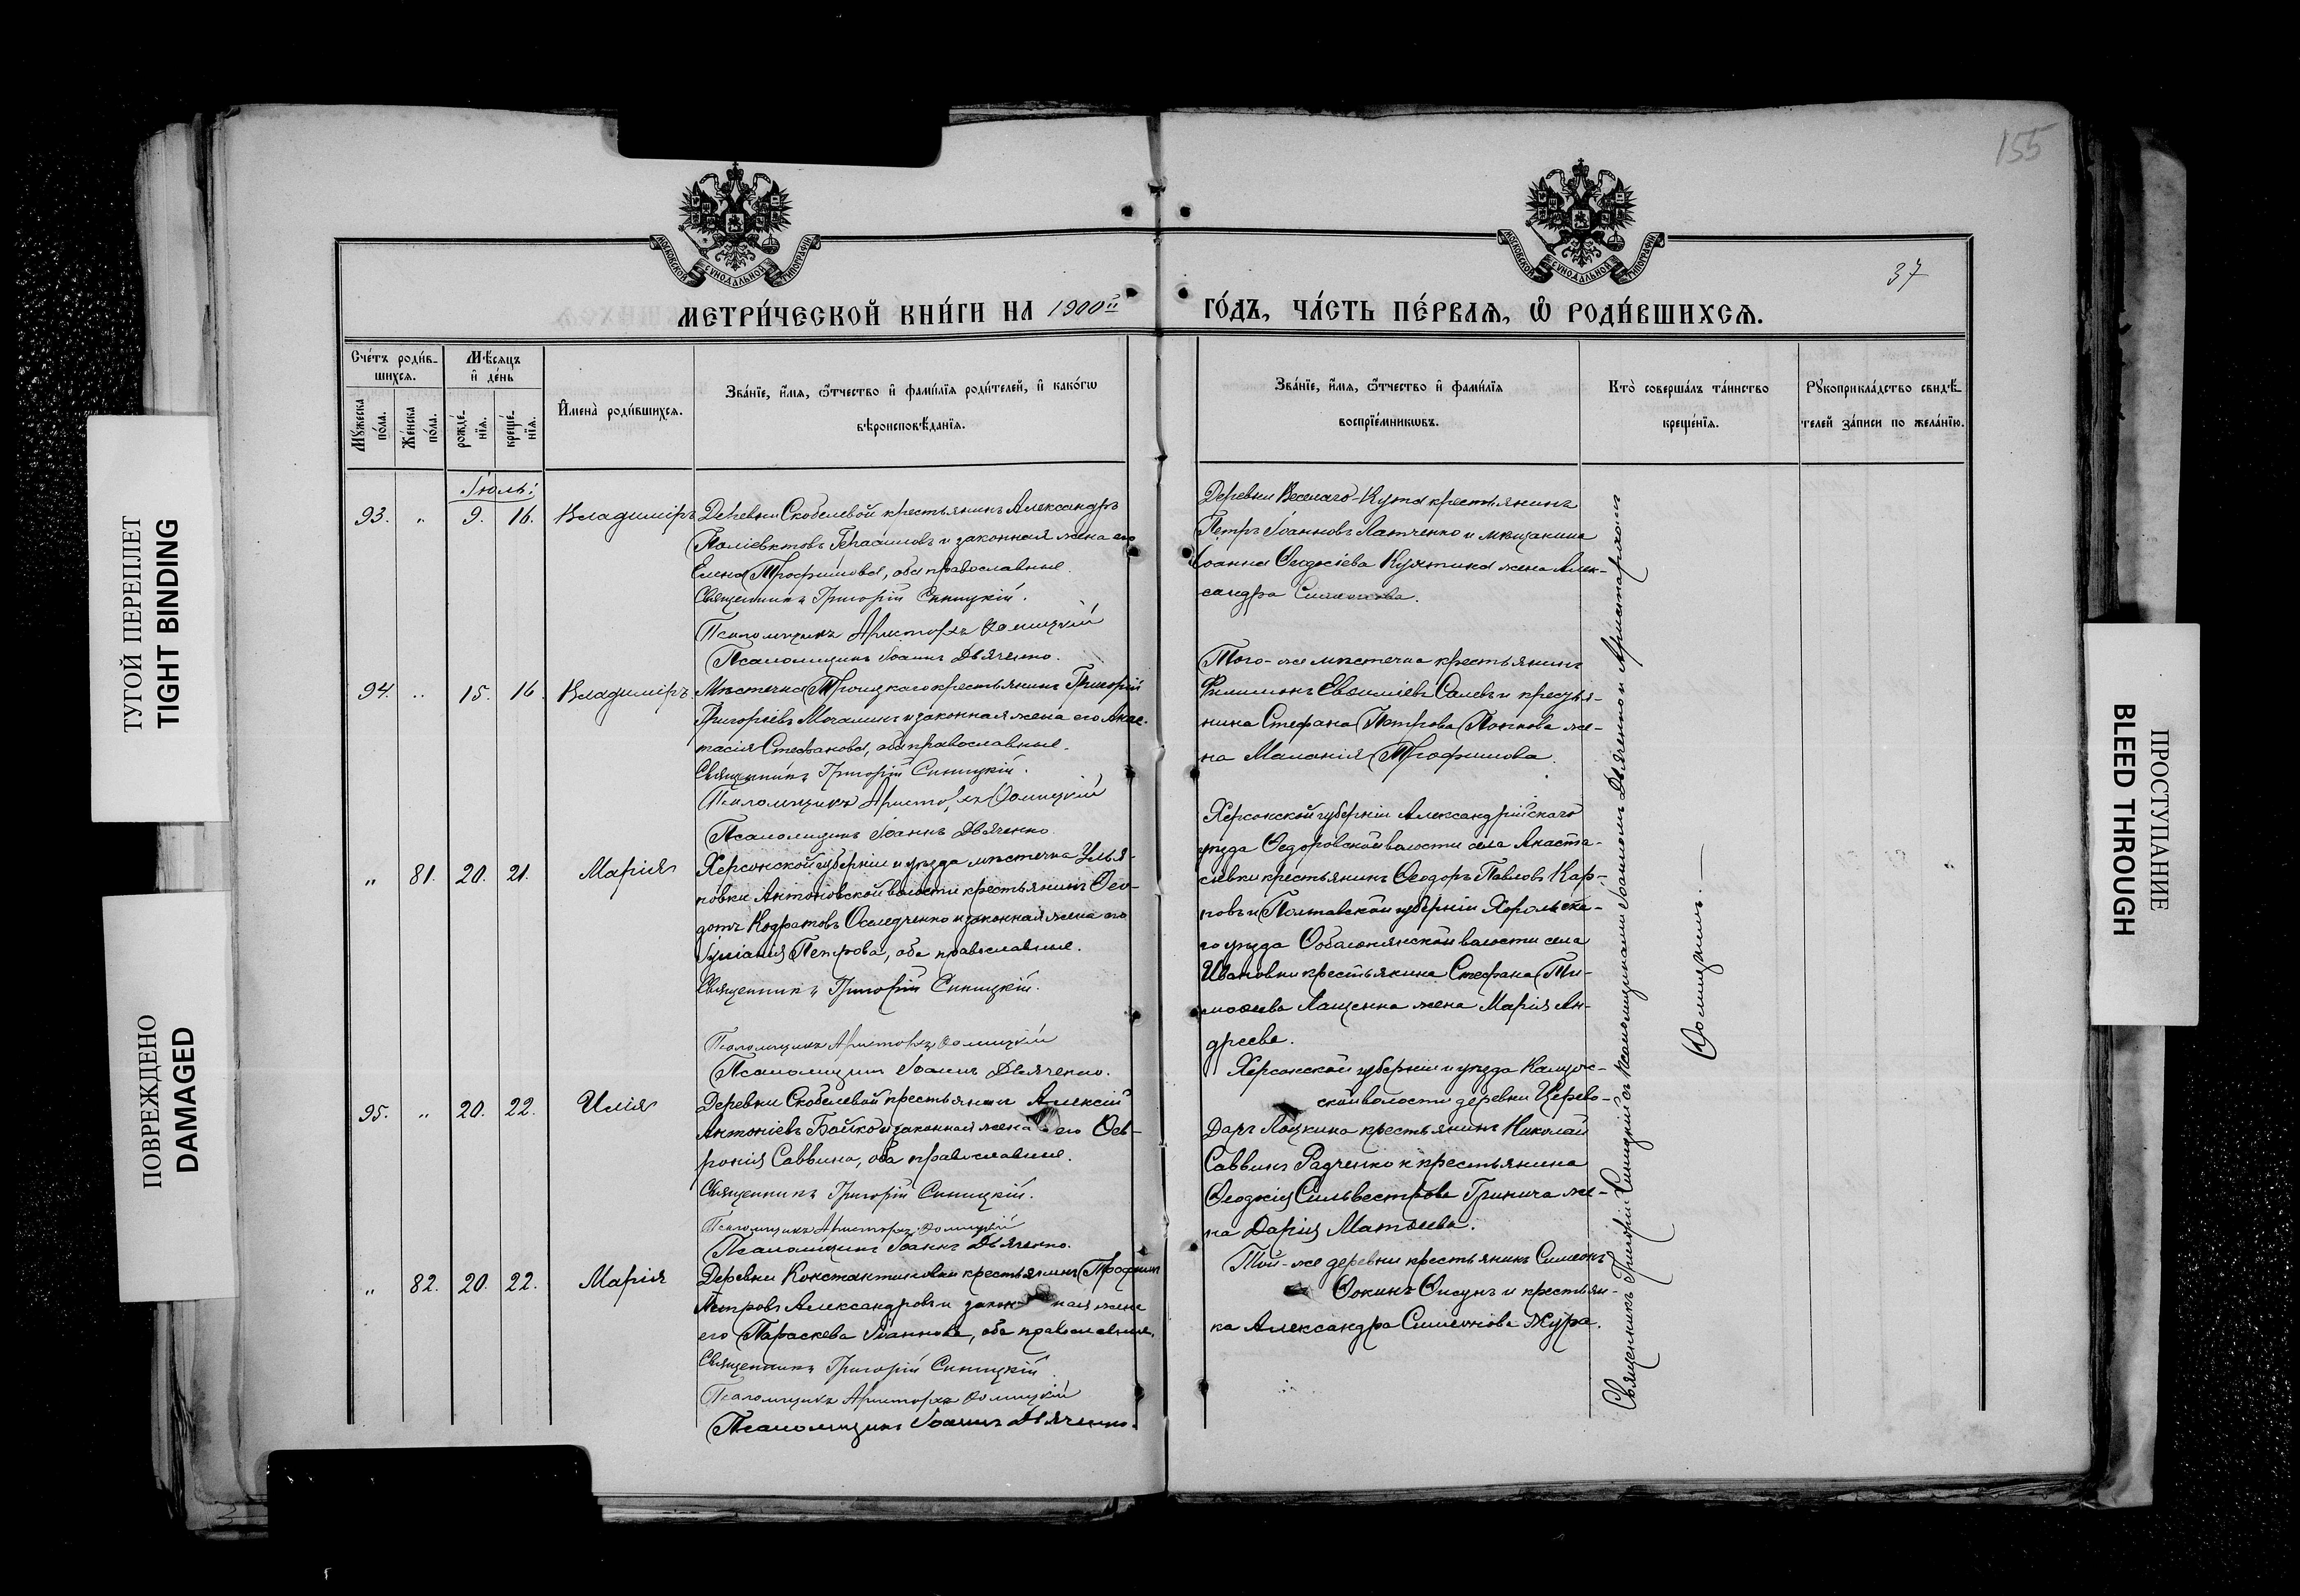 155
МОСКОВСКОЙ СѴНОДАЛЬНОЙ ТИПОГРАФІИ
МОСКОВСКОЙ СѴНОДАЛЬНОЙ ТИПОГРАФІИ
37
МЕТРИ́ЧЕСКОЙ КНИ́ГИ НА 1900й
ГО́ДЪ, ЧА́СТЬ ПЕ́РВАѦ, Ѽ РОДИ́ВШИХСѦ.
Сче́тъ роди́в-
шихсѧ.
Мꙋ́жеска по́ла.
Же́нска по́ла.
Мѣ́сѧцъ
и҆ де́нь
рожде́-
нїѧ.
креще́-
нїѧ.
И҆мена̀ роди́вшихсѧ.
Зва́нїе, и҆́мѧ, ѻ҆́тчество и҆ фами́лїѧ роди́телей, и҆ како́гѡ
вѣроисповѣ́данїѧ.
Зва́нїе, и҆́мѧ, ѻ҆́тчество и҆ фами́лїѧ
воспрїе́мникѡвъ.
Кто̀ соверша́лъ та́инство
креще́нїѧ.
Рꙋкоприкла́дство свидѣ́-
телей за́писи по жела́нїю.
Іюль:
93. " 9. 16. Владиміръ
Деревни Скобелевой крестьянинъ Александръ
Поліевктовъ Герасимовъ и законная жена его
Елена Трофимова, оба православные.
Священникъ Григорій Синицкій.
Псаломщикъ Аристархъ Ѳомицкій
Псаломщикъ Іоаннъ Дьяченко.
Деревни Веселаго-Кута крестьянинъ
Петръ Іоанновъ Латченко и мѣщанина
Іоанна Ѳеодосіева Кухтина жена Алек-
сандра Симеонова.
94. " 15. 16. Владиміръ
Мѣстечка Троицкаго крестьянинъ Григорій
Григорьевъ Мочалинъ и законная жена его Анас-
тасія Стефанова, оба православные.
Священникъ Григорій Синицкій.
Псаломщикъ Аристархъ Ѳомицкій
Псаломщикъ Іоаннъ Дьяченко.
Того-же мѣстечка крестьянинъ
Филимонъ Евѳиміевъ Салевъ и крестья-
нина Стефана Петрова Попкова же-
на Маланія Трофимова.
" 81. 20. 21. Марія
Херсонской губерніи и уѣзда мѣстечка Улья-
новки Антоновской волости крестьянинъ Ѳео-
дотъ Кодратовъ Оселедченко и законная жена его
Іуліанія Петрова, оба православные.
Священникъ Григорій Синицкій.
Псаломщикъ Аристархъ Ѳомицкій
Псаломщикъ Іоаннъ Дьяченко.
Херсонской губерніи Александрійскаго
уѣзда Ѳедоровской волости села Анаста-
сіевки крестьянинъ Ѳеодоръ Павловъ Кар-
повъ и Полтавской губерніи Хорольска-
го уѣзда волости села
Ивановки крестьянина Стефана Ти-
моѳеева Лащенка жена Марія Ан-
дреева.
95. " 20. 22. Илія
Деревни Скобелевой крестьянинъ Алексій
Антоніевъ Бойко и законная жена его Ѳев-
ронія Саввина, оба православные.
Священникъ Григорій Синицкій.
Псаломщикъ Аристархъ Ѳомицкій
Псаломщикъ Іоаннъ Дьяченко.
Херсонской губерніи и уѣзда
ской волости деревни Церево-
Даръ Лоцкина крестьянинъ Николай
Саввинъ Радченко и крестьянина
Ѳеодосія Сильвестрова Гринича же-
на Дарія Матѳеева.
" 82. 20. 22. Марія
Деревни Константиновки крестьянинъ Трофимъ
Петровъ Александровъ и законная жена
его Параскева Іоаннова, оба православные.
Священникъ Григорій Синицкій
Псаломщикъ Аристархъ Ѳомицкій
Псаломщикъ Іоаннъ Дьяченко.
Той-же деревни крестьянинъ Симеонъ
Ѳокинъ и крестьян-
ка Александра Симеонова Жура.
Священникъ Григорій Синицкій съ псаломщиками Іоанномъ Дьяченко и Аристархомъ
Ѳомицкимъ. —
ТУГОЙ ПЕРЕПЛЕТ
TIGHT BINDING
ПОВРЕЖДЕНО
DAMAGED
ПРОСТУПАНИЕ
BLEED THROUGH